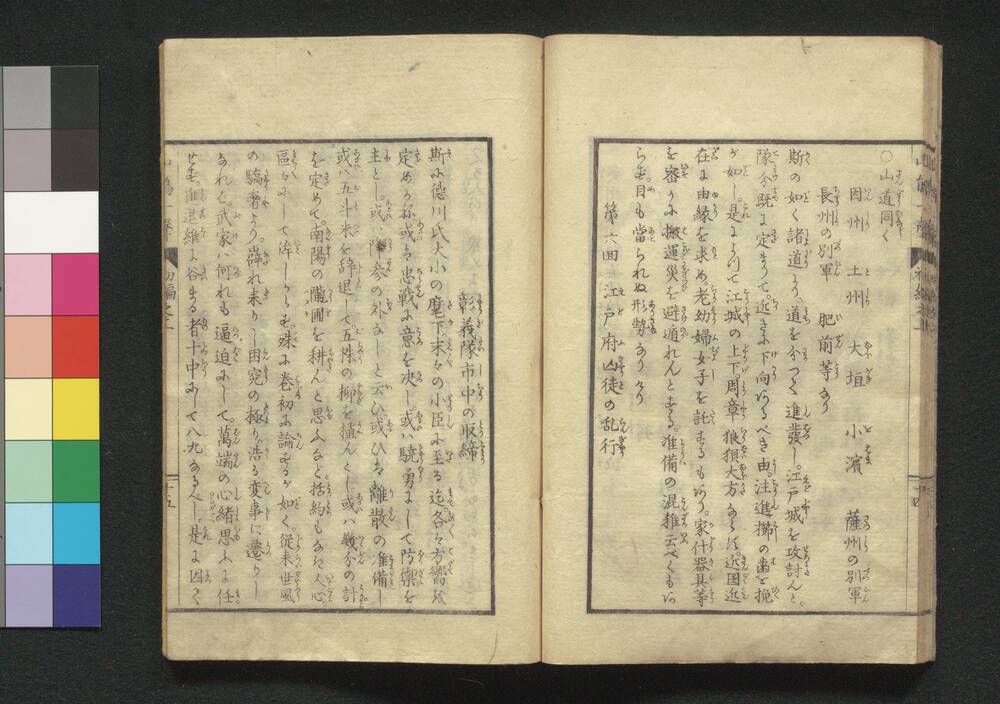 ○山道同く
因州 土州 大垣 小濱 薩州の別軍
長州の別軍 肥前等なり
斯の如く諸道より。道を分つて進發し。江戸城を攻討んと。
隊分既に定まりて。近きに下向有るべき由。注進櫛の歯を挽
が如し。是によつて江城の上下。周章狼狽大方ならず。近国近
在に由縁を求め。老幼婦女子を託するも有り。家什器具等
を密かに搬運災を避遁れんとする。准備の混雑云べくもあ
らず目も当られぬ形勢なりけり
第六回 江戸府凶徒の乱行
彰義隊市中の取締
斯に徳川氏大小の麾下。末々の小臣に至る迄。各々方嚮を
定めかね。或は忠戦に意を决し。或ハ驍勇にして防禦を
主とし。或ハ降参の外なしと云ひ或ひは離散の准備し
或ハ五斗米を辞退して五株の柳を
を定めて。南陽の隴圃を耕んと思ふなど。括約もなき人心
區々にして
の驕奢より。窮れ来りし困究の極り。浩る変事に遭りし
なれど。武家ハ何れも逼迫にして。萬端の心緒思ふに任
せず。進退維に谷まる者十中にして八九なるべし。是に因て
初編之上